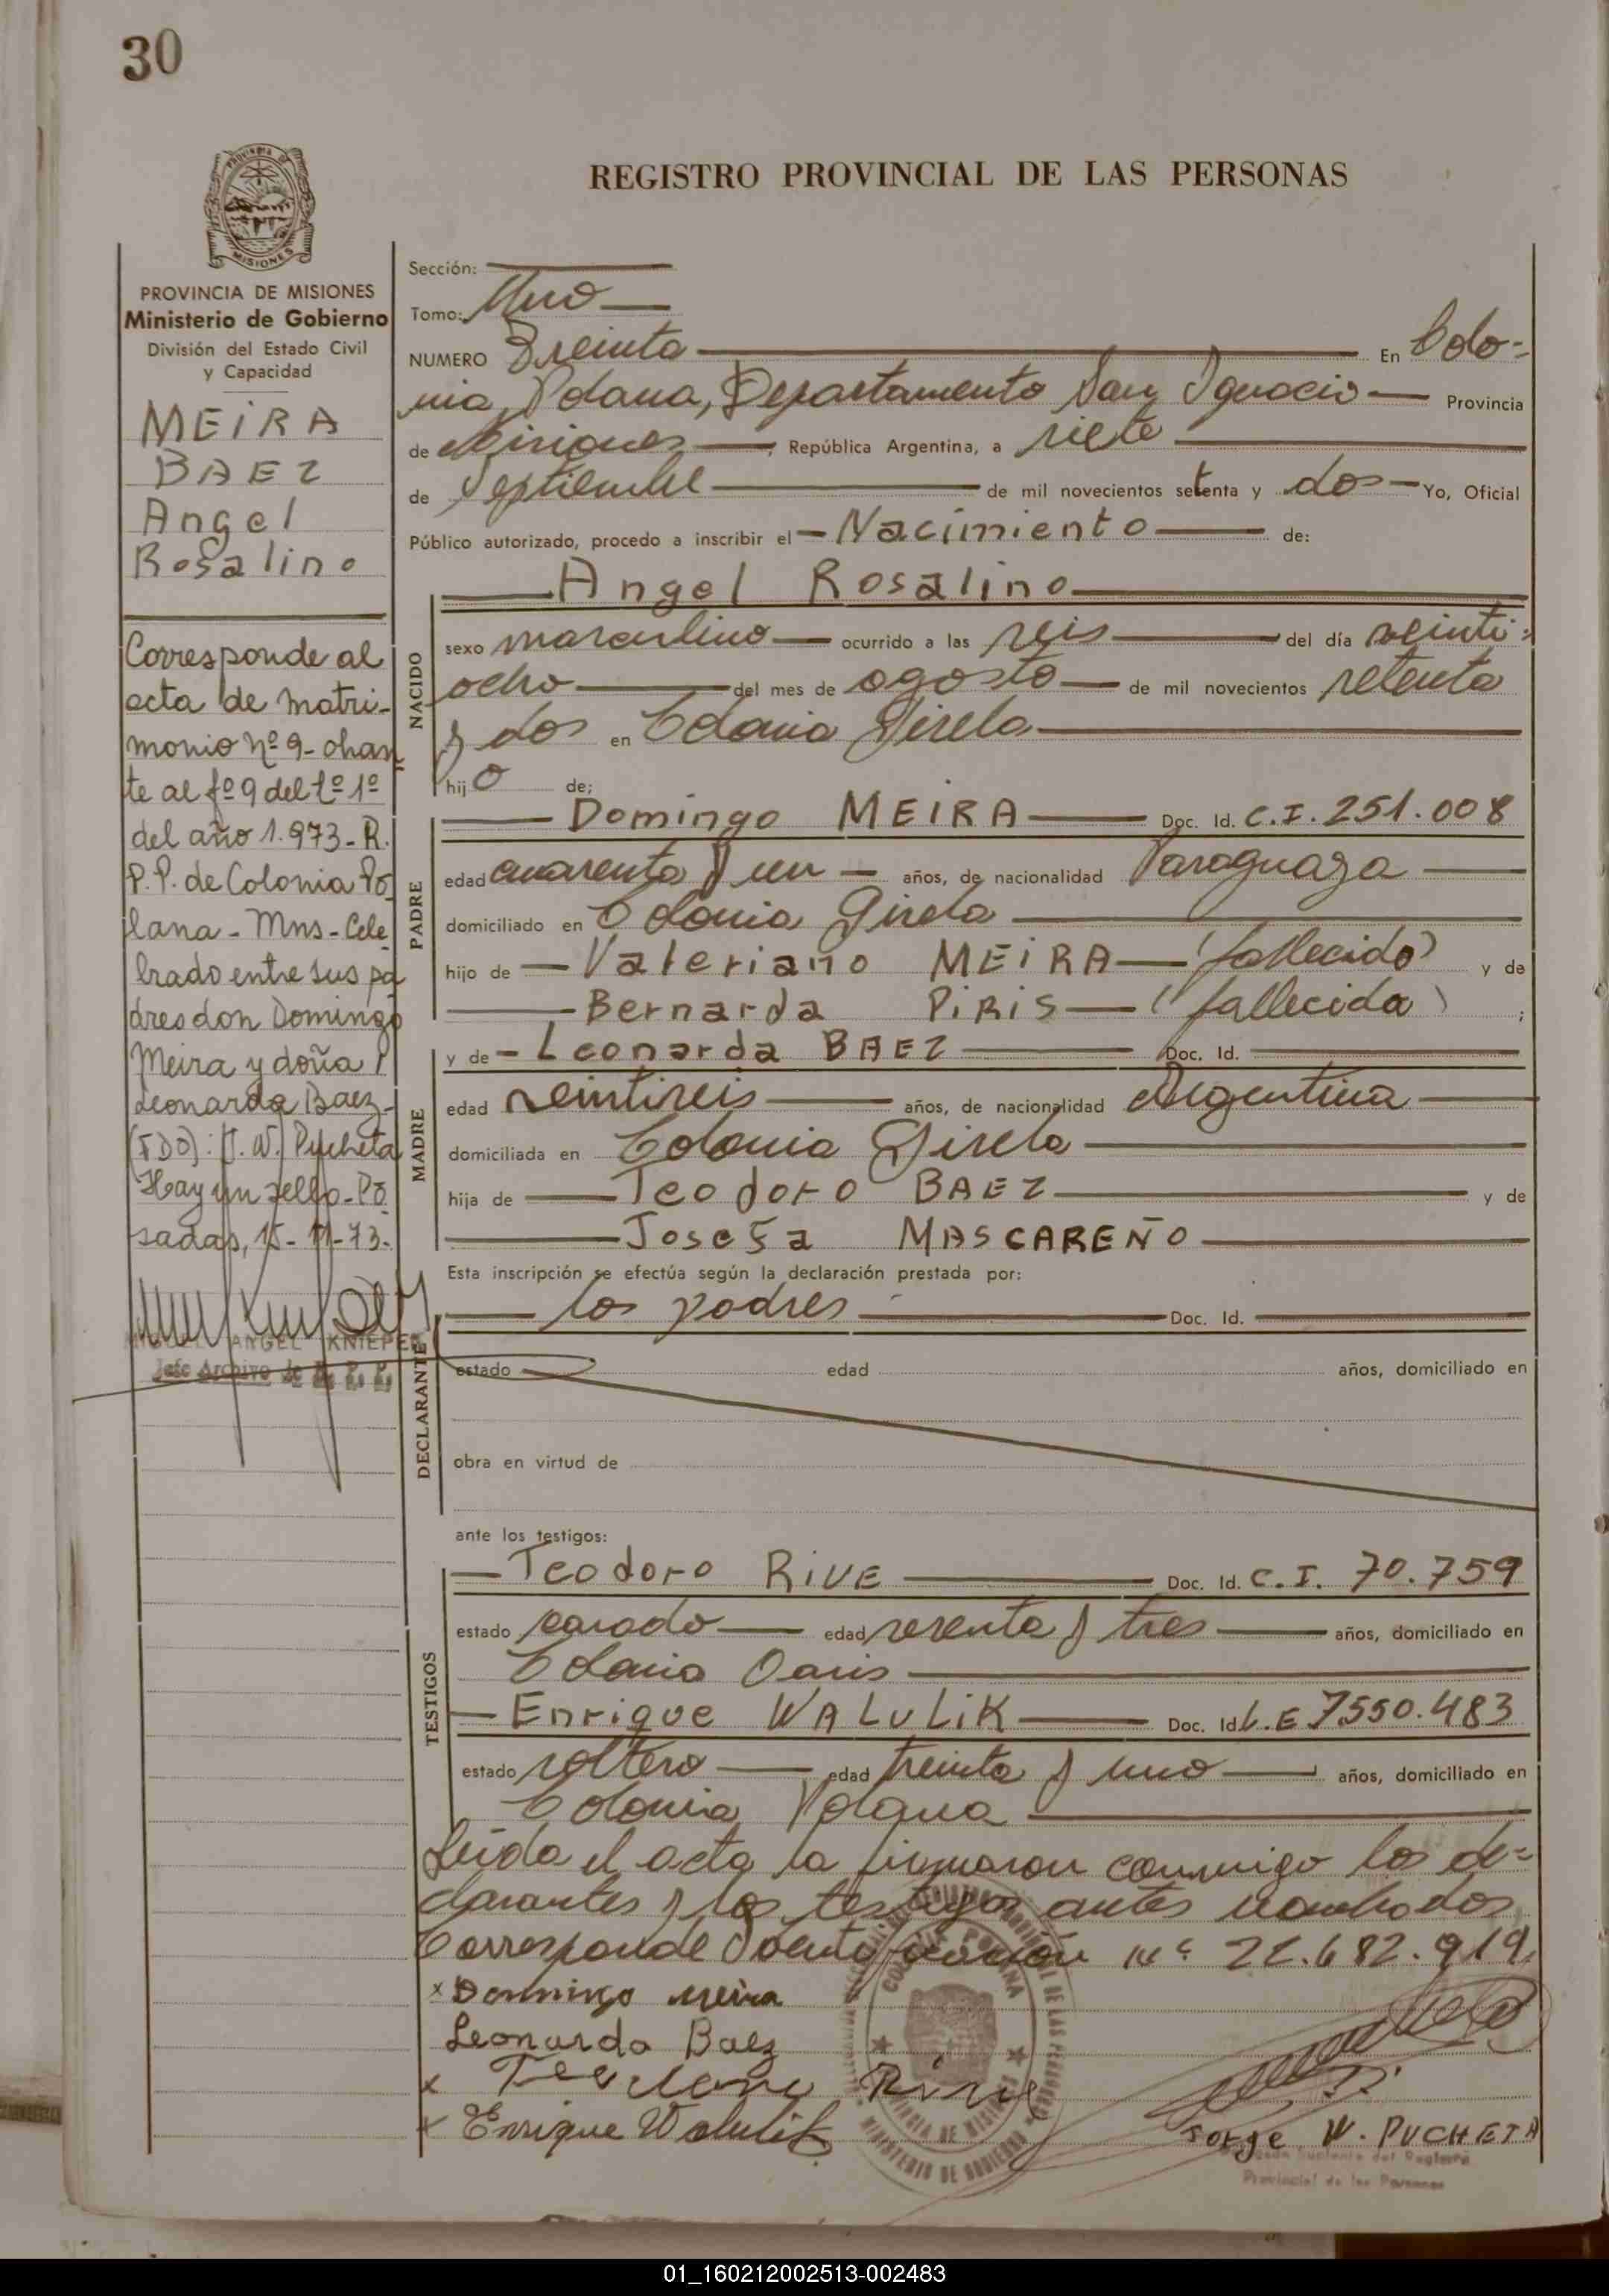 30
REGISTRO PROVINCIAL DE LAS PERSONAS
PROVINCIA DE MISIONES
Ministerio de Gobierno
División del Estado Civil
y Capacidad
MEiRA
BAEZ
Angel
Rosalino
Corresponde al
acta de matri-
monio Nº 9- obran
te al fº 9 del tº 1º
del año 1.973- R.
P.P. de Colonia Po
lana - Mns - Cele
brado entre sus pa
dres don Domingo
Meira y doña
Leonarda Baez-
(FDO): J. W. Pucheta
Hay un sello - Po
sadas, 15- 11-73.
MIGUEL ANGEL KNIEPER
Jefe Archivo de R. P. P.
Sección:
Tomo: Uno
NUMERO Treinta En Colo=
nia Polana, Departamento San Ignacio Provincia
de Misiones, República Argentina, a siete
de Septiembre de mil novecientos setenta y dos Yo, Oficial
Público autorizado, procedo a inscribir el Nacimiento de:
NACIDO
Angel Rosalino
sexo masculino ocurrido a las seis del día veinti=
ocho del mes de agosto de mil novecientos setenta
y dos en Colonia Gisela
hijo de:
PADRE
Domingo MEIRA Doc. Id. C.I. 251.008
edad cuarenta y un años, de nacionalidad Paraguaya
domiciliado en Colonia Gisela
hijo de Valeriano MEiRA (fallecido) y de
Bernarda PiRiS (fallecida) ;
MADRE
y de Leonarda BAEZ Doc. Id.
edad veintiseis años, de nacionalidad Argentina
domiciliada en Colonia Gisela
hija de Teodoro BAEZ y de
Josefa MASCAREÑO
Esta inscripción se efectúa según la declaración prestada por:
DECLARANTE
los padres Doc. Id.
estado edad años, domiciliado en
obra en virtud de
ante los testigos:
TESTIGOS
Teodoro RiVE Doc. Id. C.I. 70.759
estado casado edad sesenta y tres años, domiciliado en
Colonia Oasis
Enrique WALULiK Doc. Id L.E 7550.483
estado soltero edad treinta y uno años, domiciliado en
Colonia Polana
Leida el acta la firmaron conmigo los de=
clarantes y los testigos antes nombrados
Corresponde Identificación Nº 22.682.919
x Domingo Meira
Leonarda Baez
x Rive
x Enrique Walulik
Jorge W. PUCHETA
Provincial de las Personas
01_160212002513-002483